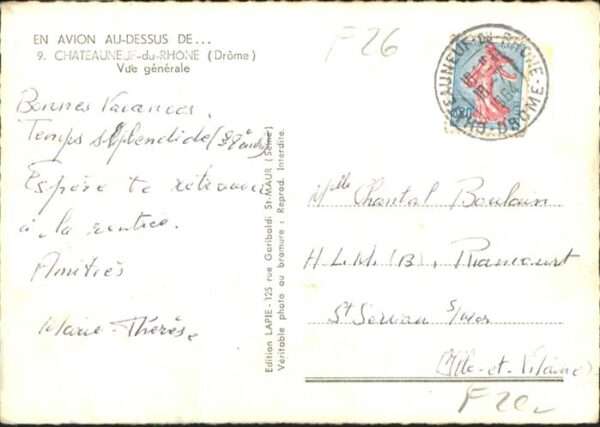 EN AVION AU-DESSUS DE...
9. CHATEAUNEUF-du-RHONE (Drôme)
Vue générale
Bonnes Vacances.
Temps splendide
Espère te retrouver
à la rentrée.
Amitiés
Marie-Thérèse
Edition LAPIE - 125 rue Garibaldi St-MAUR (Seine)
Véritable photo au bromure : Reprod. Interdite.
F26
CHATEAUNEUF-DU-RHONE
DROME
Mlle Chantal Boulain
H.L.M. (B), Riancourt
St Servan s/mer
(Ille-et-Vilaine)
F20